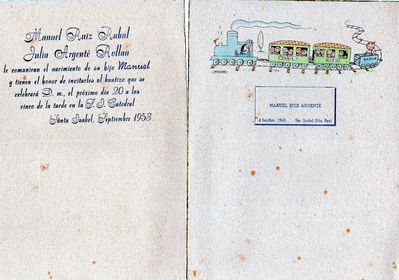 Manuel Ruiz Rubal
Julia Argenté Rollan
le comunican el nacimiento de su hijo Manuel
y tienen el honor de invitarles al bautizo que se
celebrará D. m., el próximo día 20 a las
cinco de la tarde en la S. I. Catedral
Santa Isabel, Septiembre 1953
MANUEL RUIZ ARGENTÉ